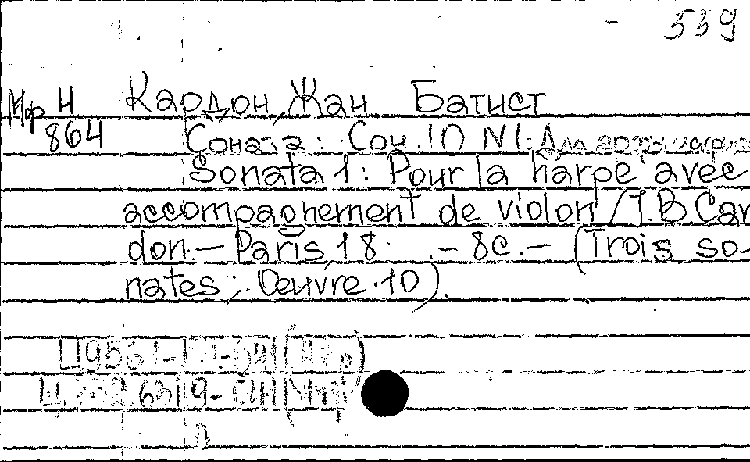 - 539
Мф Ч Кардон, Жан Батист
864 Соната: Соч. 10 N1. Для
Sonata 1: Pour la harpe avec
accompagnement de violon / J.B Car
don. — Paris, 18 . — 8с. — (Trois so-
nates; Œuvre 10).